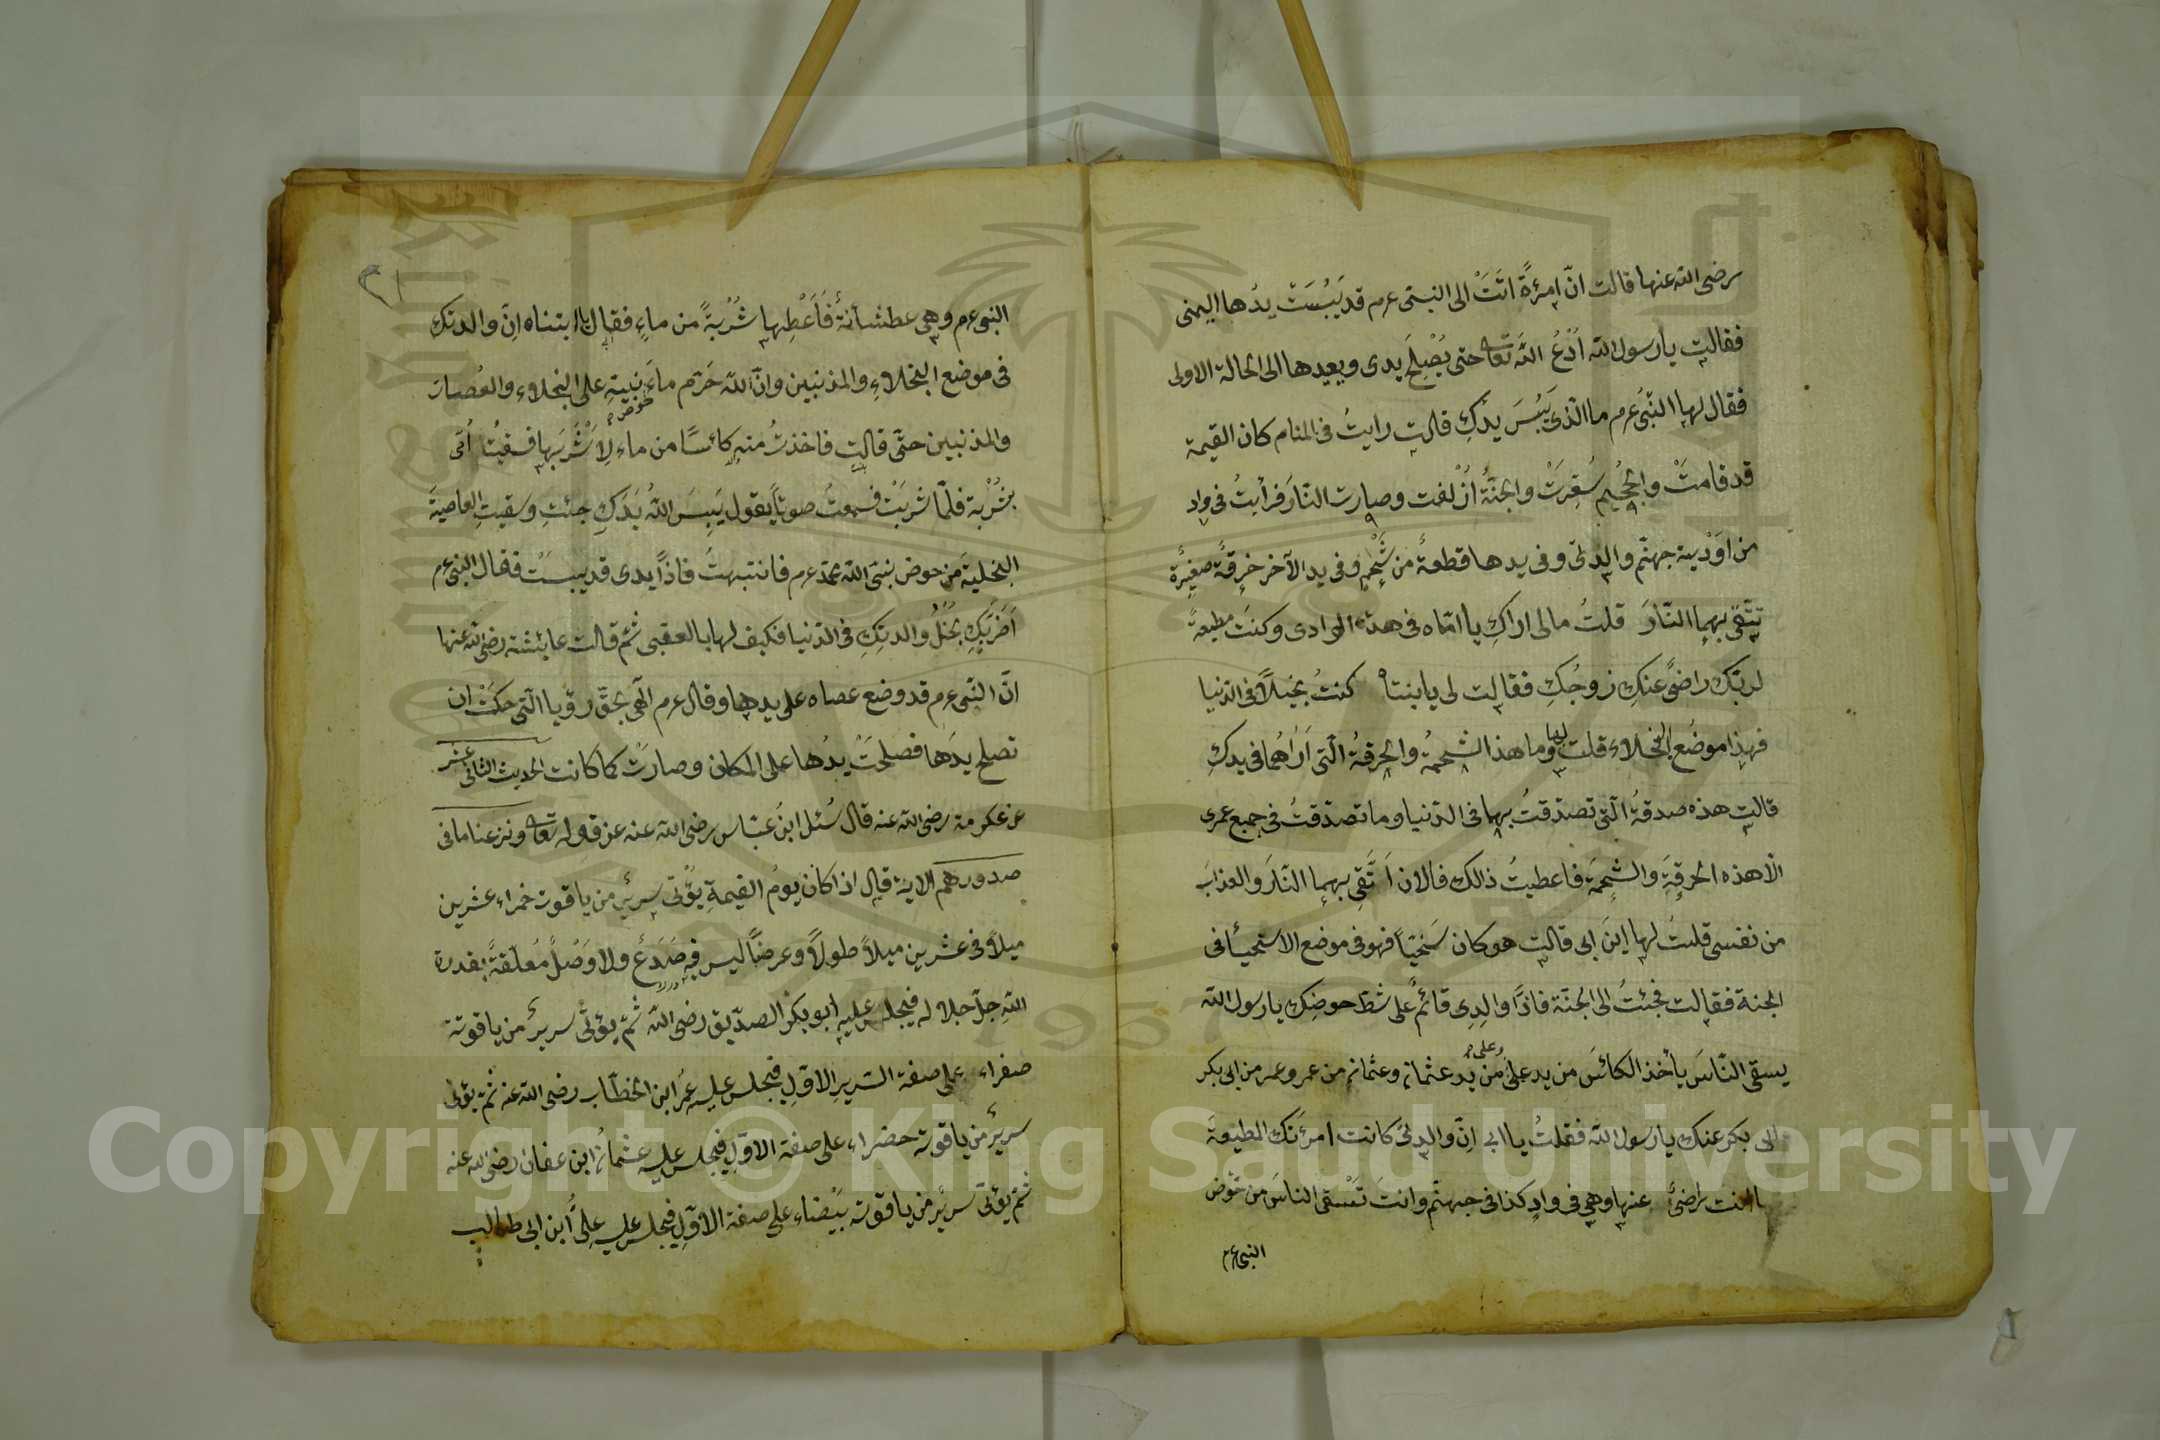 رضى الله عنها قالت انّ امرءةً اتَتْ الى النبىّ عرم قد يَبُسَتْ يدُها اليمنى
فقالت يا رسول الله اُدْعُ اللّهَ تعالى حتى يُصْلِحَ يدى ويعيدها الى الحالة الاولى
فقال لها النّبىُ عرم ما الّذى يَبُسَ يدَكِ قالت رايتُ فى المنام كان القيمة
قد قامتْ والجحيم سُعِّرَتْ والجنّةُ اُزْلفت وصارت النّارَ فرأيتُ فى وادٍ
من اَوْدية جهنّم والدتى وفى يدها قطعةٌ من شَحْمٍ وفى يد الآخر خرقةٌ صغيرةٌ
تتّقى بهما النّارَ قلتُ مالى اراكِ يا امّاه فى هذه الوادى وكنتَ مطيعةً
لربّك راضىً عنكِ زوجُكِ فقالت لى يا بنتاه كنتُ بخيلاً فى الدّنيا
فهذا موضع البُخلاء قلت لها وما هذا الشحمةُ والخرقةُ الّتى اَرٰاهُما فى يدكِ
قالت هذه صدقةُ الّتى تصدّقتُ بها فى الدّنيا وما تصدّقتُ فى جميع عمرى
الّا هذه الخرقةَ والشحمةَ فاعطيتُ ذالك فالان اَتَّقى بهما النّارَ والعذابَ
من نفسى قلتُ لها اينَ ابى قالت هو كان سَخيّاً فهو فى موضع الاسخيٓاء فى
الجنة فقالت فجئتُ الى الجنّة فاذاً والِدِى قائمٌ على شطّ حوضِك يا رسول الله
يسقى النّاسَ يأخذ الكأسَ من يد علىٍّ وعلى من يد عثمان وعثمان من عمر وعمر من ابى بكر
وابى بكر عنك يا رسول الله فقلتُ يا ابى اِنّ والدتى كانت امرءَتك المطيعةَ
راضىً عنها وهى فى وادٍ كذا فى جهنّم وانتَ تَسْقى الناسَ من حوض
النبى عرم
النبى عرم وهى عطشانةٌ فَاَعْطِها شُرْبةً من ماءٍ فقال يا ابنتاه اِنّ والدتكِ
فى موضع البخلاءِ والمذنبين وانّ اللّهَ حَرّم ماءَ نبيّهِ على البُخلاءِ والعُصاة
حوض
والمذنبين حتّى قالت فاخذتُ منه كاسًا من ماء لِاَشْرَبَها فسقيتُ اُمّى
بشُرْبة فلمّا شربَتْ فسمعتُ صوتاً يقول يَبِسَ اللهُ يَدَكِ جئتِ وسقيتِ العاصيةَ
البخليةَ من حوض نبىّ الله محمّد عرم فانتبهتُ فاذاً يدى قد يبستْ فقال النبى عرم
اَضَرَّكِ بُخْلُ والدتِكِ فى الدّنيا فكيف لها بالعقبى ثمّ قالت عايشة رضى الله عنها
انّ النّبى عرم قد وضع عصاه على يدها وقال عرم الٓهى بحقّ رؤيا الّتى حكَتْ ان
تصلح يدَها فصلحَتْ يدُها على المكان وصارَتْ كما كانت الحديث الثانى عشر
عن عكرمة رضى الله عنه قال سُئل ابن عبّاس رضى الله عنه عن قوله تعالى ونزعنا ما فى
صدورهم الاية قال اذا كان يومُ القيمةِ يُؤْتى سريرٌ من ياقوت حمراء عشرين
ميلاً فى عشرين ميلاً طولاً وعرضاً ليس فيه صَدَعٌ ولا وَصْلٌ مُعلّقةٌ بقدرة
اللّهِ جلّ جلاله فيجلس عليه ابو بكر الصدّيق رضى اللّه ثمّ يؤتى سريرٌ من ياقوتة
صفراء على صفة السّريرِ الاوّلِ فيجلس عليه عمرُ ابن الخطّاب رضى الله عنه ثمّ يؤتى
سريرٌ من ياقوت خضراء على صفة الاوّلِ فيجلس عليه عثمانُ ابن عفان رضى الله عنه
ثمّ يؤتى سريرٌ من ياقوتة بَيْضاء على صفة الاوّلِ فيجلس عليه علىُّ ابن ابى طالب
Copyright © King Saud University
1957